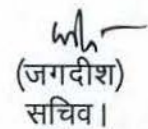 (जगदीश)
सचिव।